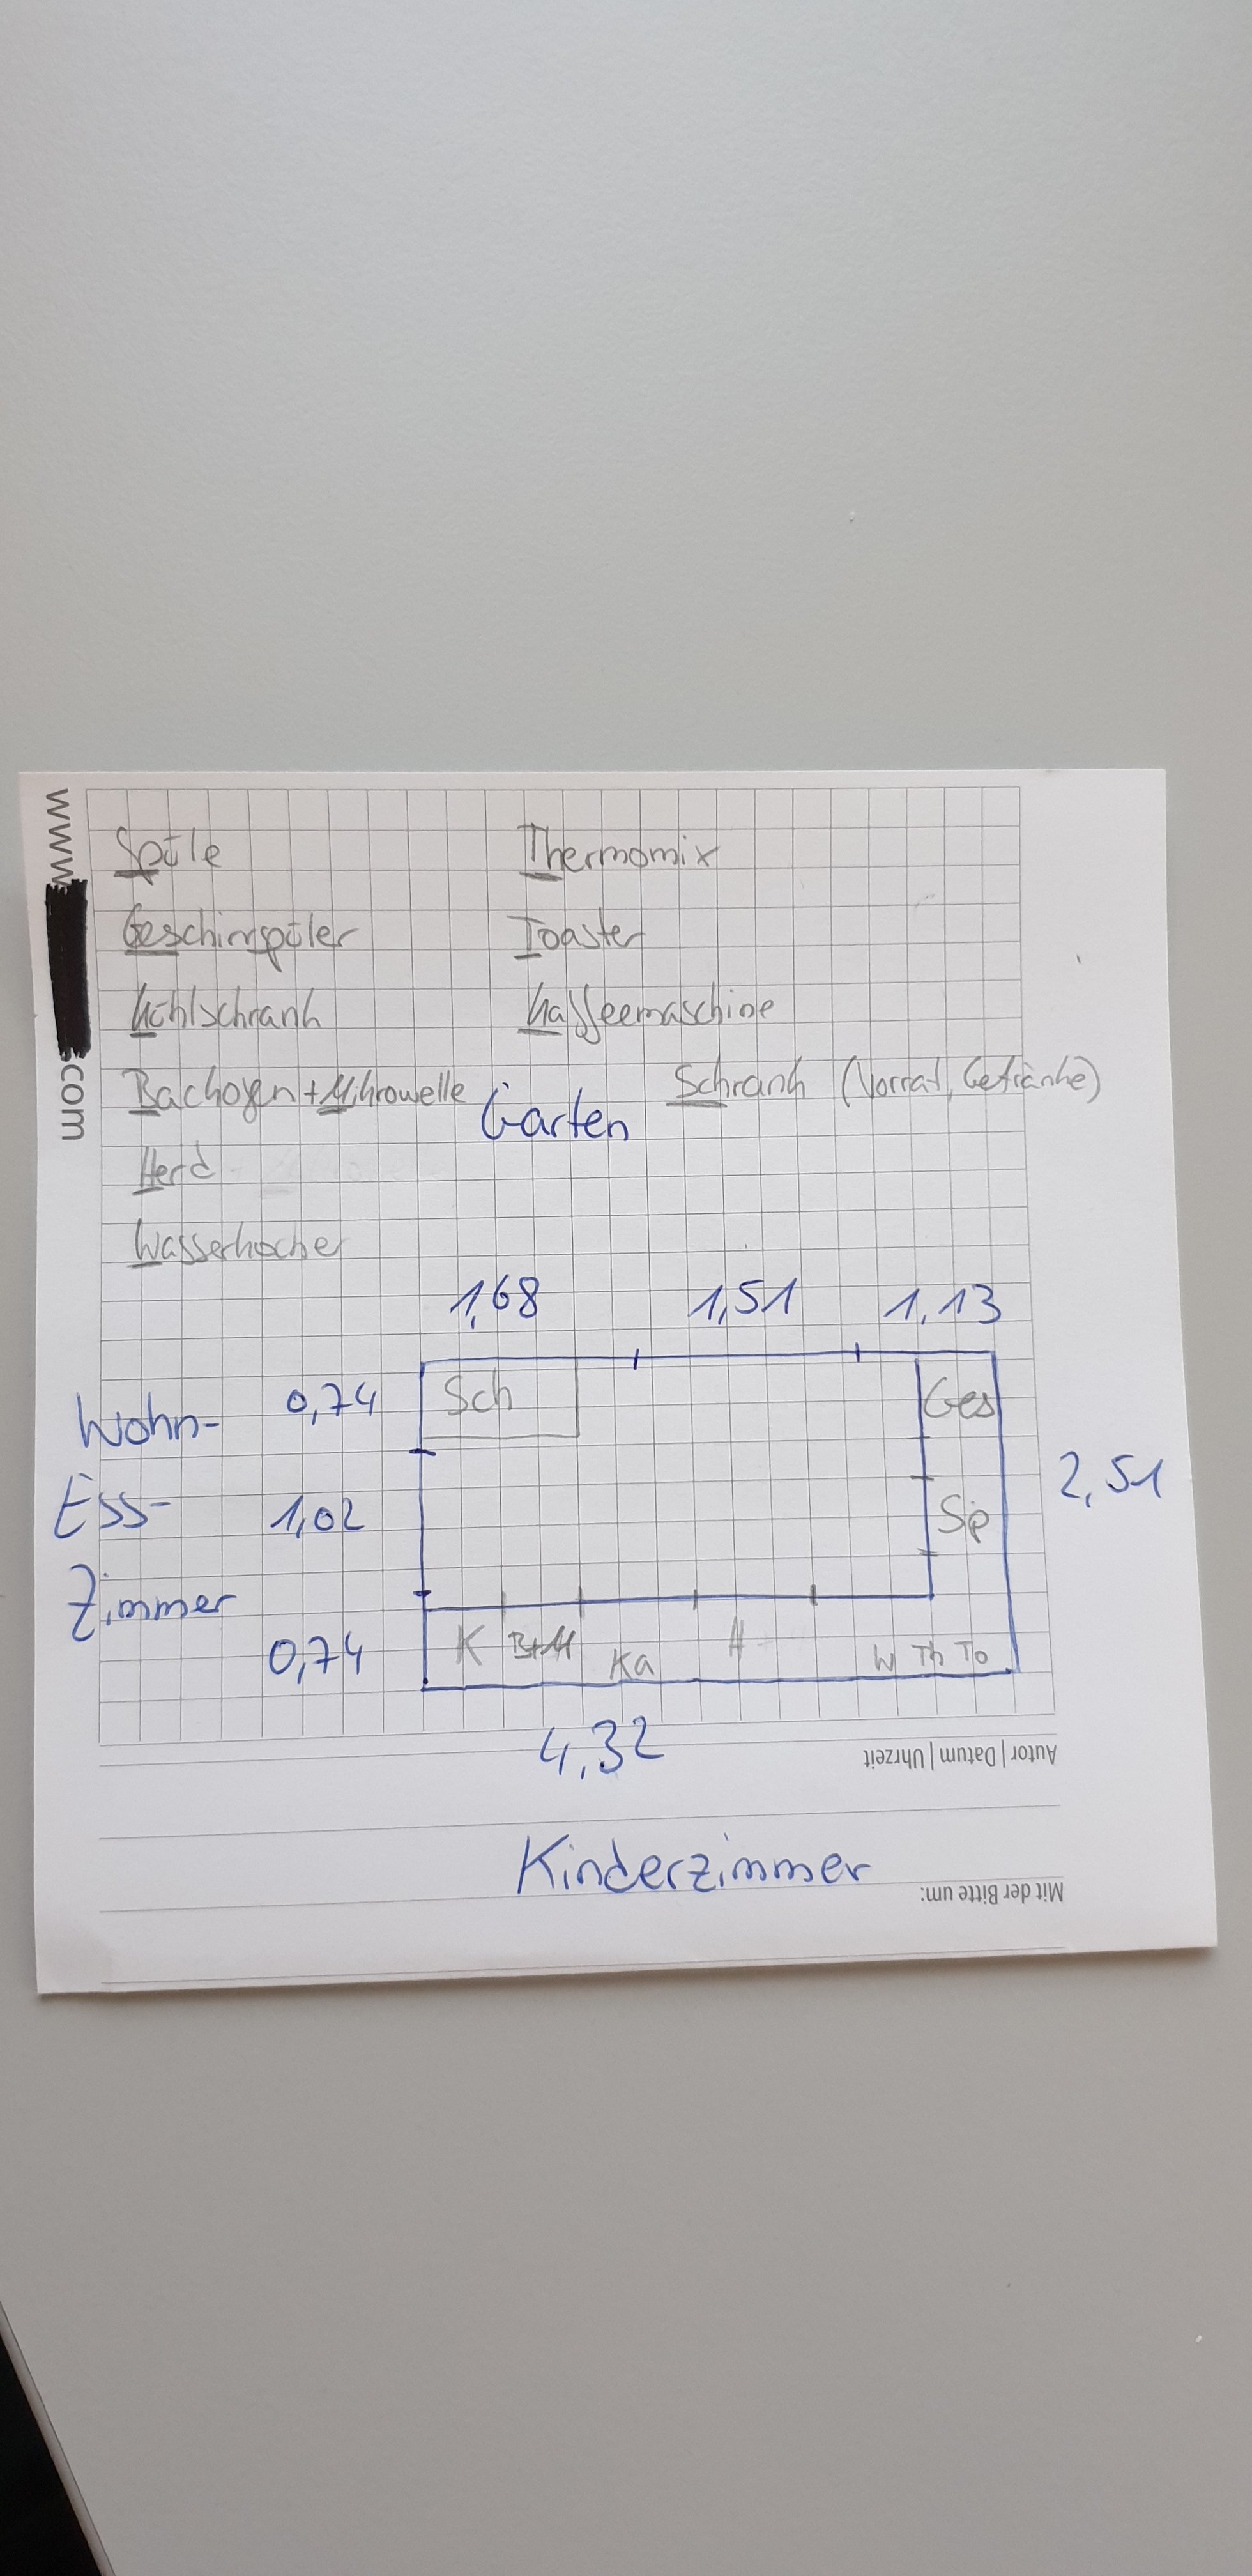 www
.com
Spüle
Thermomix
Geschirrspüler
Toaster
Kühlschrank
Kaffeemaschine
Backofen + Mikrowelle
Schrank (Vorrat, Getränke)
Garten
Herd
Wasserkocher
1,68 1,51 1,13
Wohn-
0,74
Sch
Ges
Ess-
1,02
Sp
2,51
Zimmer
0,74
K B+M Ka H W Th To
4,32
Autor | Datum | Uhrzeit
Kinderzimmer
Mit der Bitte um: